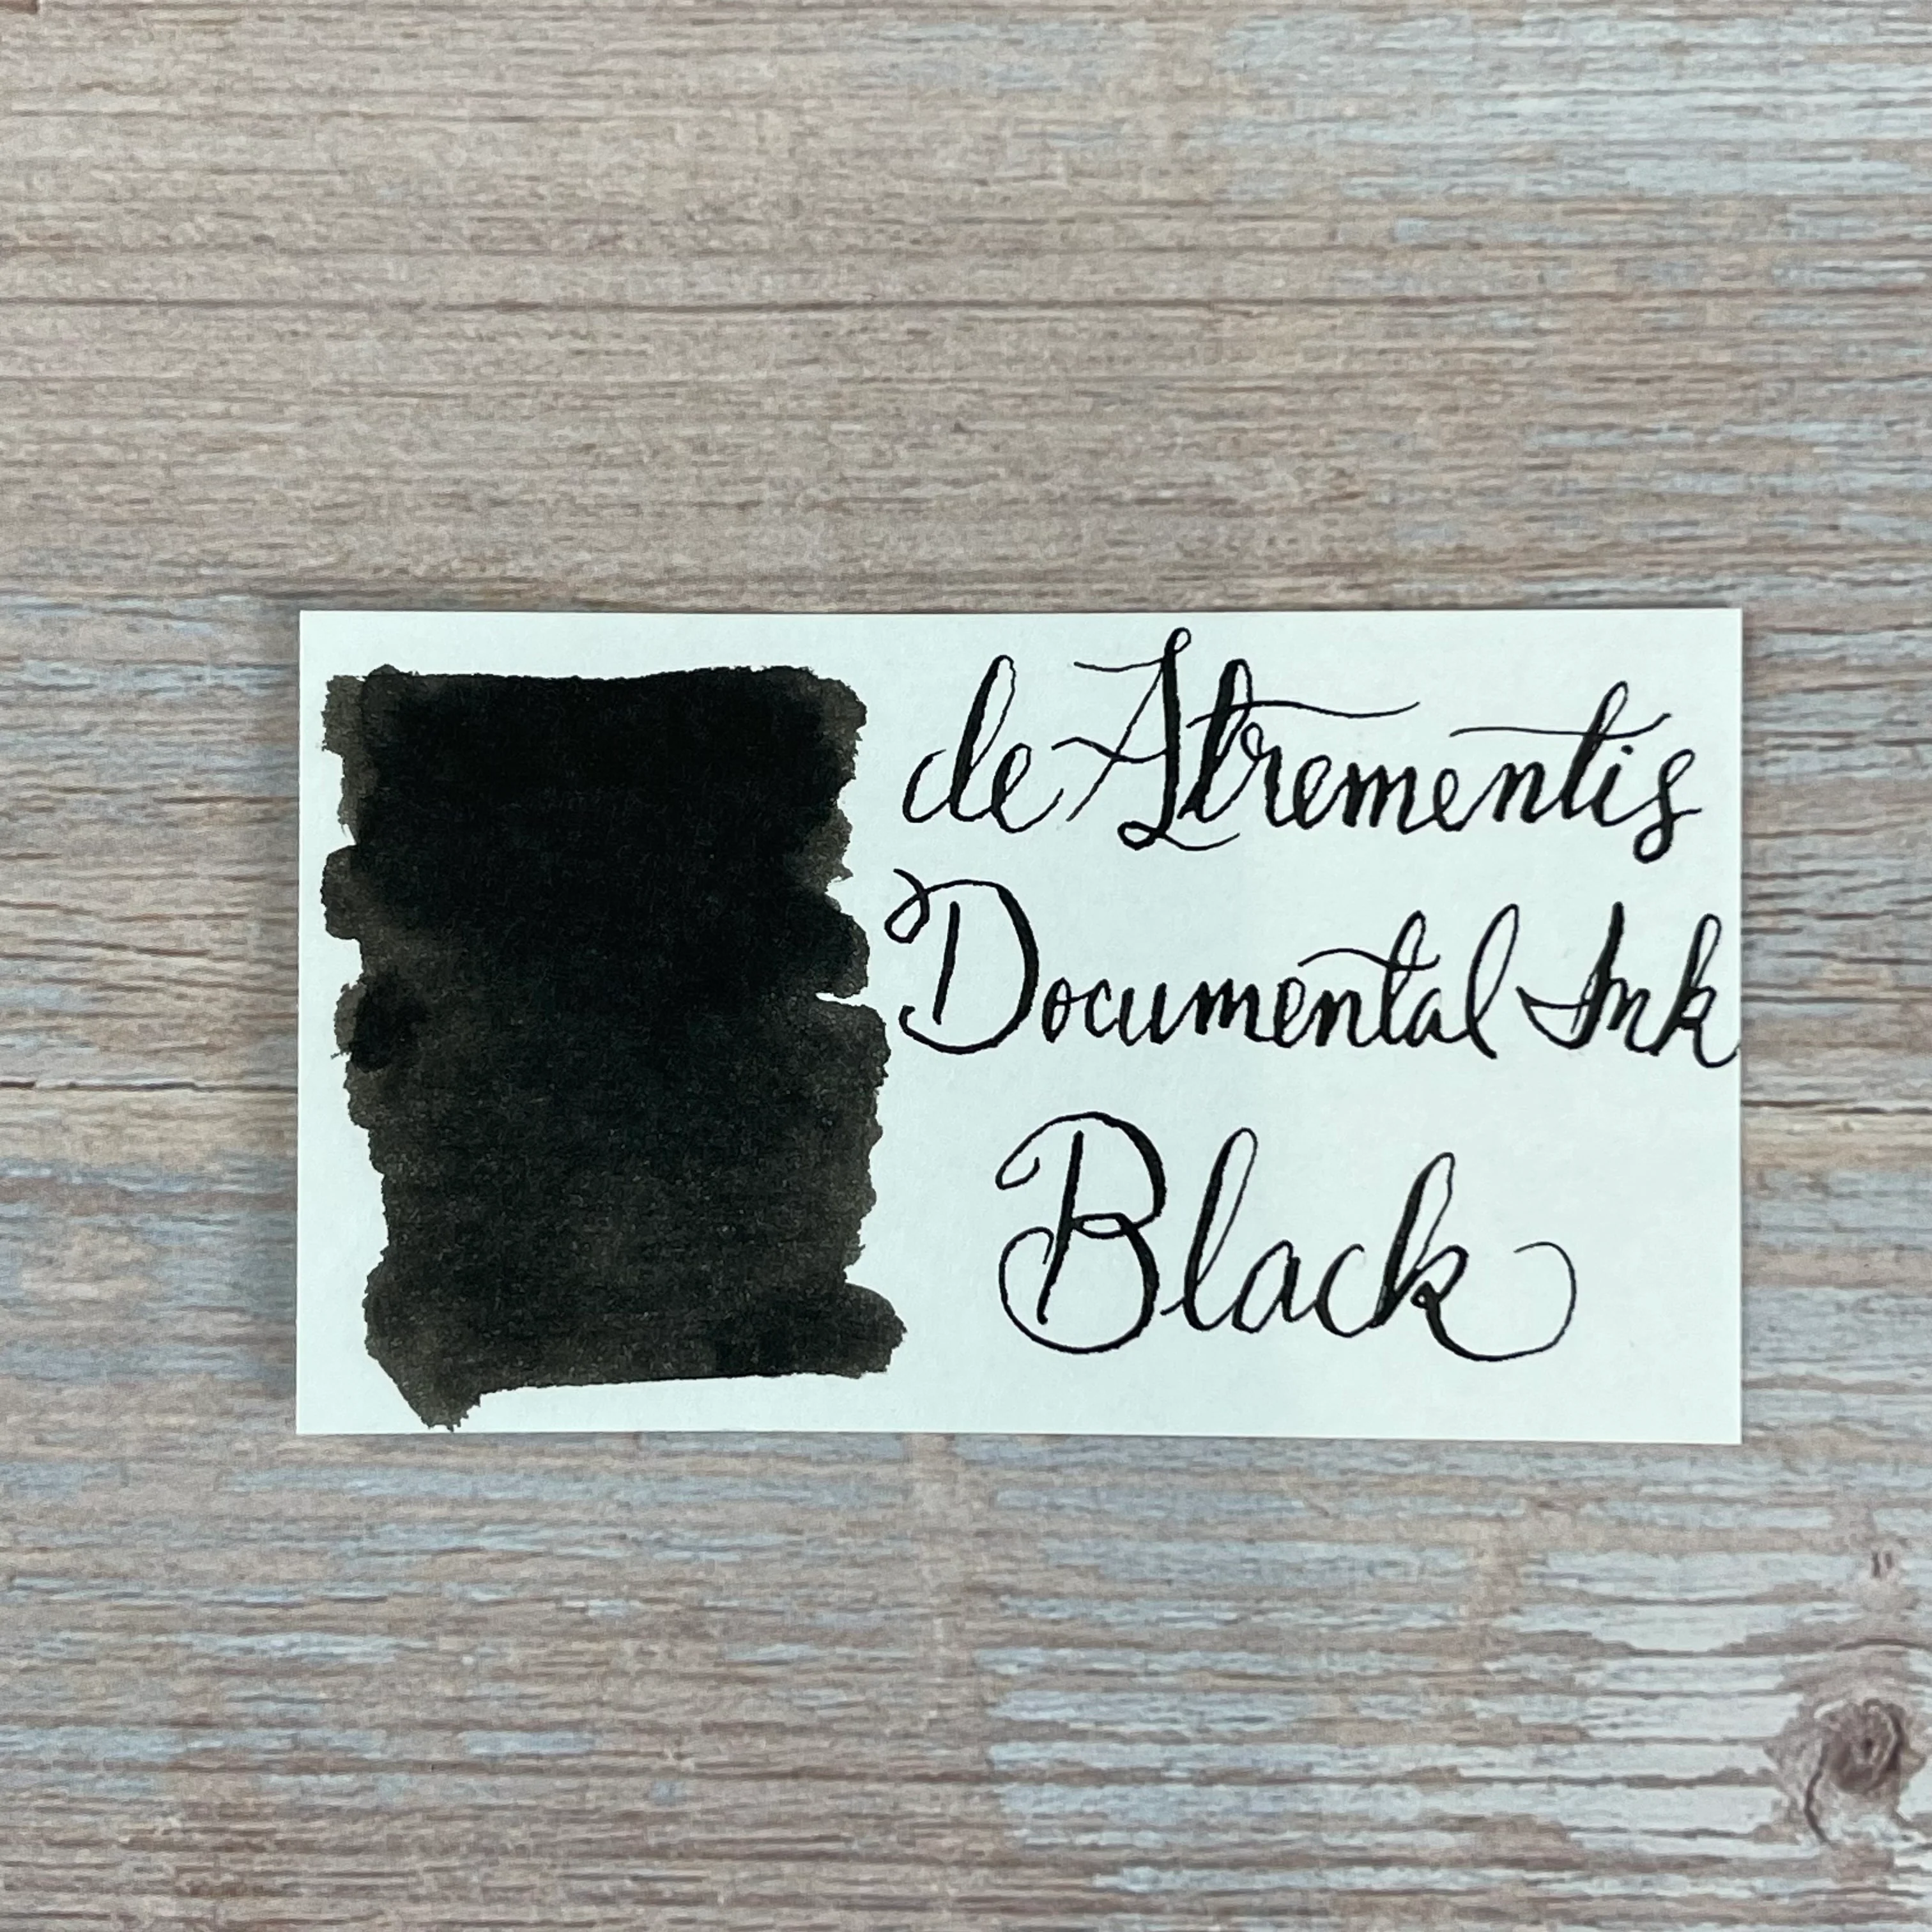 de Atrementis
Documental Ink
Black